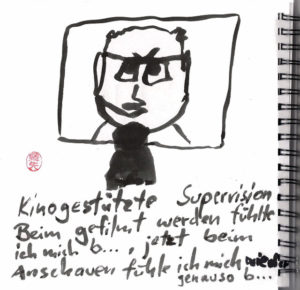 Kinogestützte Supervision
Beim gefilmt werden fühlte
ich mich b..., jetzt beim
Anschauen fühle ich mich wieder
genauso b...